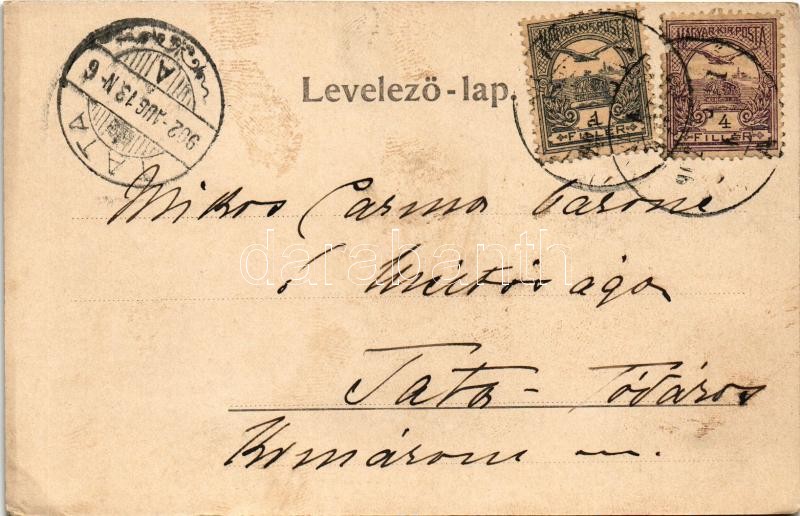 Levelező-lap.
MAGYAR·KIR·POSTA
1
FILLÉR
MAGYAR·KIR·POSTA
4
FILLÉR
TATA
902-AUG 13 N 6
A
Mikos báróné
ő Méltósága
Tata-Tóváros
Komárom m.
darabanth